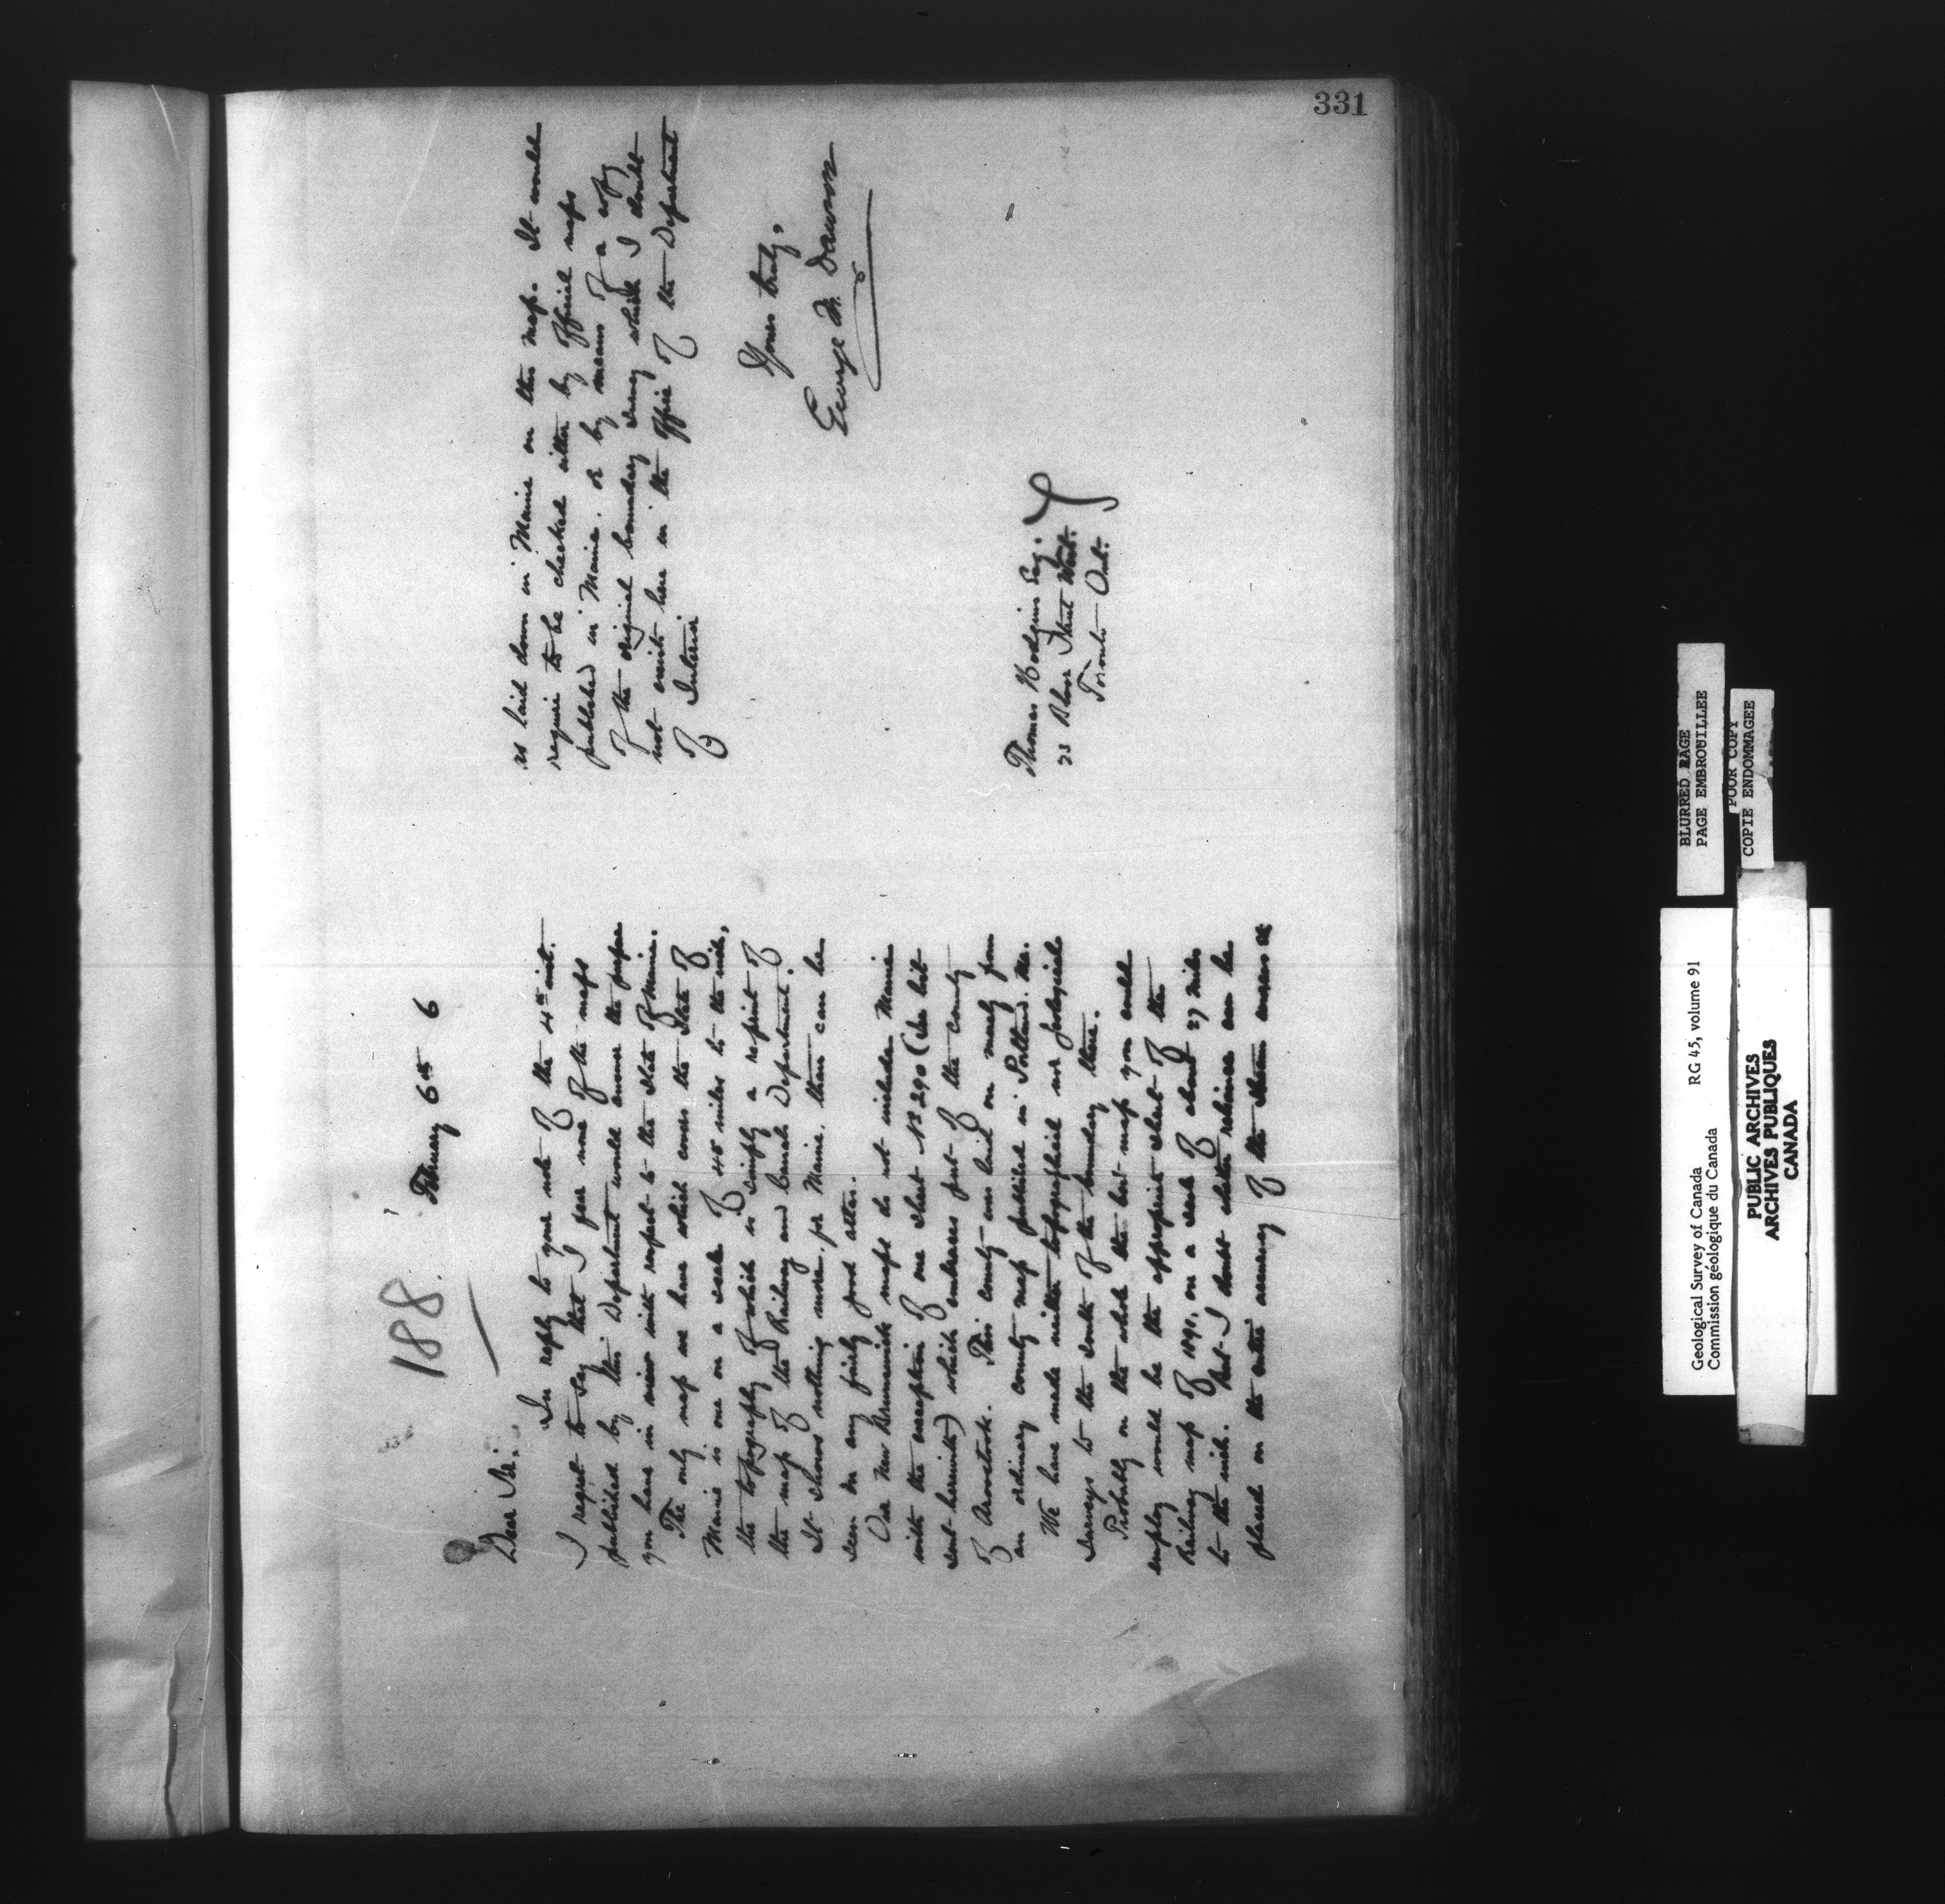 331
188.
February 6th 6
Dear Sir:
In reply to your note of the 4th inst.
I regret to say that I fear none of the maps
published by this Department would answer the purpose
you have in view with respect to the State of Maine.
The only map we have which covers the State of
Maine is one on a scale of 45 miles to the inch,
the topography of which is simply a reprint of
the map of the Railway and Canals Department.
It shows nothing more, for Maine, than can be
seen in any fairly good atlas.
Our New Brunswick maps do not include Maine
with the exception of one sheet No 290 (see list
sent herewith) which embraces part of the county
of Aroostook. This county was laid on merely from
an ordinary county map published in Portland, Me.
We have made neither topographical nor geological
surveys to the south of the boundary there.
Probably on the whole the best map you could
employ would be the appropriate sheet of the
Railway map of 1891, on a scale of about 27 miles
to the inch. But I doubt whether reliance can be
placed on the entire accuracy of the
as laid down in Maine on this map. It would
require to be checked either by official maps
published in Maine, or by means of a copy
of the original boundary survey which I doubt
not exists here in the office of the Department
of Interior
Yours truly,
George M. Dawson
Thomas Hodgins Esq.
23 Bloor Street West.
Toronto Ont.
BLURRED PAGE
PAGE EMBROUILLEE
POOR COPY
COPIE ENDOMMAGEE
Geological Survey of Canada RG 45, volume 91
Commission géologique du Canada
PUBLIC ARCHIVES
ARCHIVES PUBLIQUES
CANADA